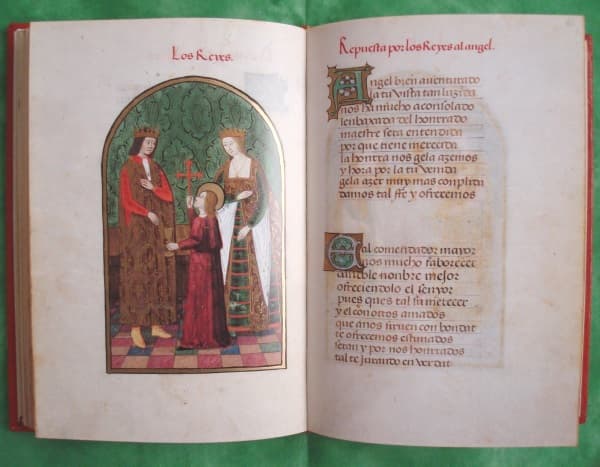 Los Reyes.
Repuesta por los Reyes al angel.
Angel bien auenturado
la tu vista tan luzida
nos ha mucho aconsolado
lenbaxada del honrrado
maestre sera entendida
por que tiene merecida
la honrra nos gela azemos
y hora por la tu venida
gela azer muy mas conplida
damos tal ffe y ofrecemos
Eal comendador mayor
nos mucho faborecer
nonbre mejor
ofreciendolo el senyor
pues que tal su merecer
y el con otros amados
que anos siruen con bondat
te ofrecemos estimados
seran y por nos honrrados
tal te jurando en verdat